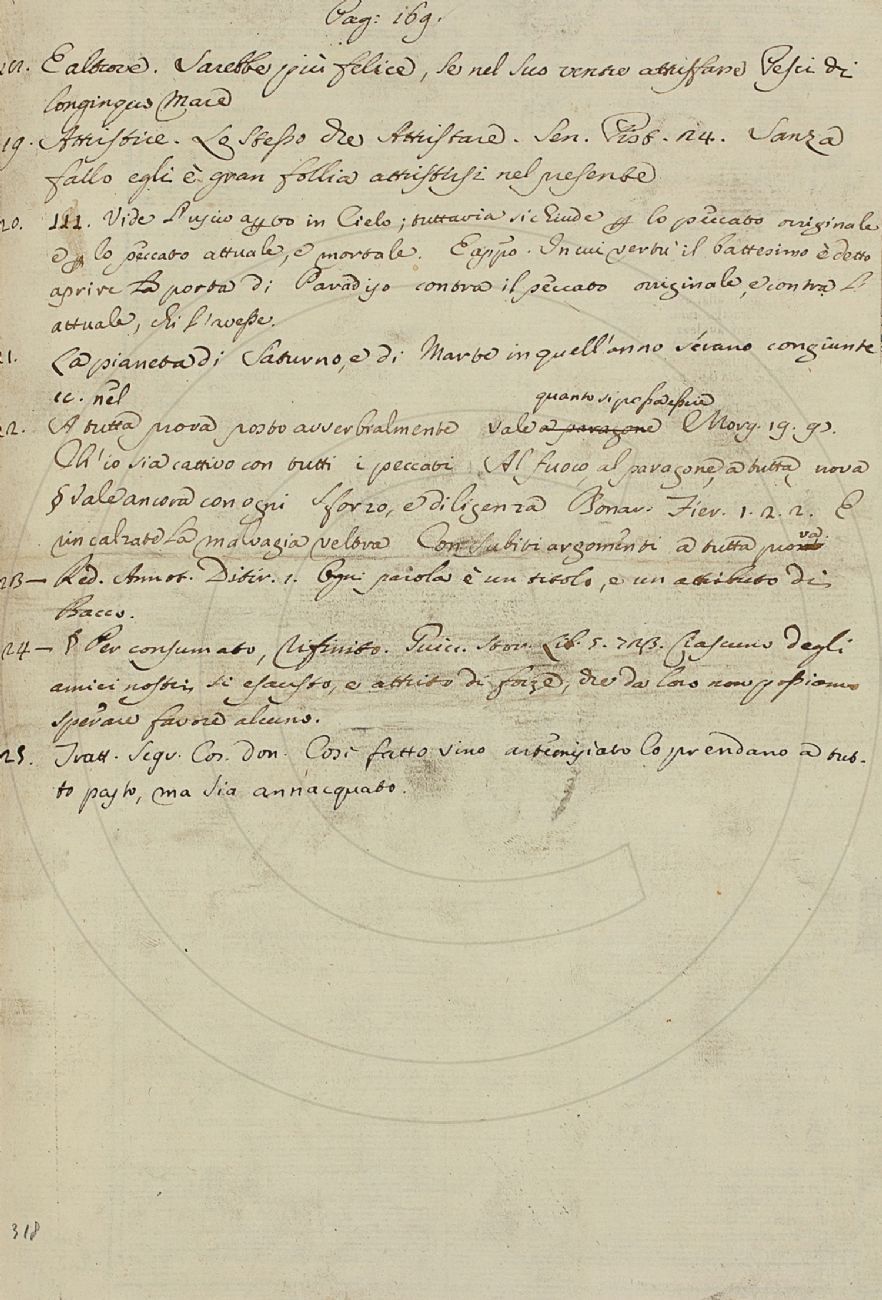 Pag: 169.
18. E altrove. Sarebbe più felice, se nel suo ventre attuffasse Pesci di
longinquo Mare
19. Attristire. Lo stesso che Attristare. Sen. Pist. 24. Sanza
fallo egli è gran follia attristirsi nel presente
20. 111. Vide l'uscio apto in Cielo; tuttavia si chiude p lo peccato originale
e p lo peccato attuale, e mortale. E appo. In cui vertù il battesimo è detto
aprire la porta di Paradiso contra il peccato originale, e contra l'
attuale, chi l'avesse.
21. La pianeta di Saturno, e di Marte in quell'anno s'erano congiunte
ec. nel
quanto si possa essere
22. A tutta prova posto avverbialmente vale a paragone Morg. 19. 9.
Ch'io sia cattivo con tutti i peccati Al fuoco, al paragone, a tutta prova
§ Vale ancora con ogni sforzo, e diligenza Bonar. Fier. 1. 2. 2. E
rincalzate la malvagia veltra Con subiti argomenti a tutta prova
23 – Red. Annot. Ditir. 1. Ogni parola è un titolo, e un attributo di
Bacco.
24 – § Per consumato, Rifinito. Guicc. Stor. Lib. 5. 723. Ciascuno degli
amici nostri si esausto, e attrito di forze, che da loro non possiamo
sperare favore alcuno.
25. Tratt. Segr. Cos. don. Così fatto vino artemisiato lo prendano a tut-
to pasto, ma sia annacquato.
318